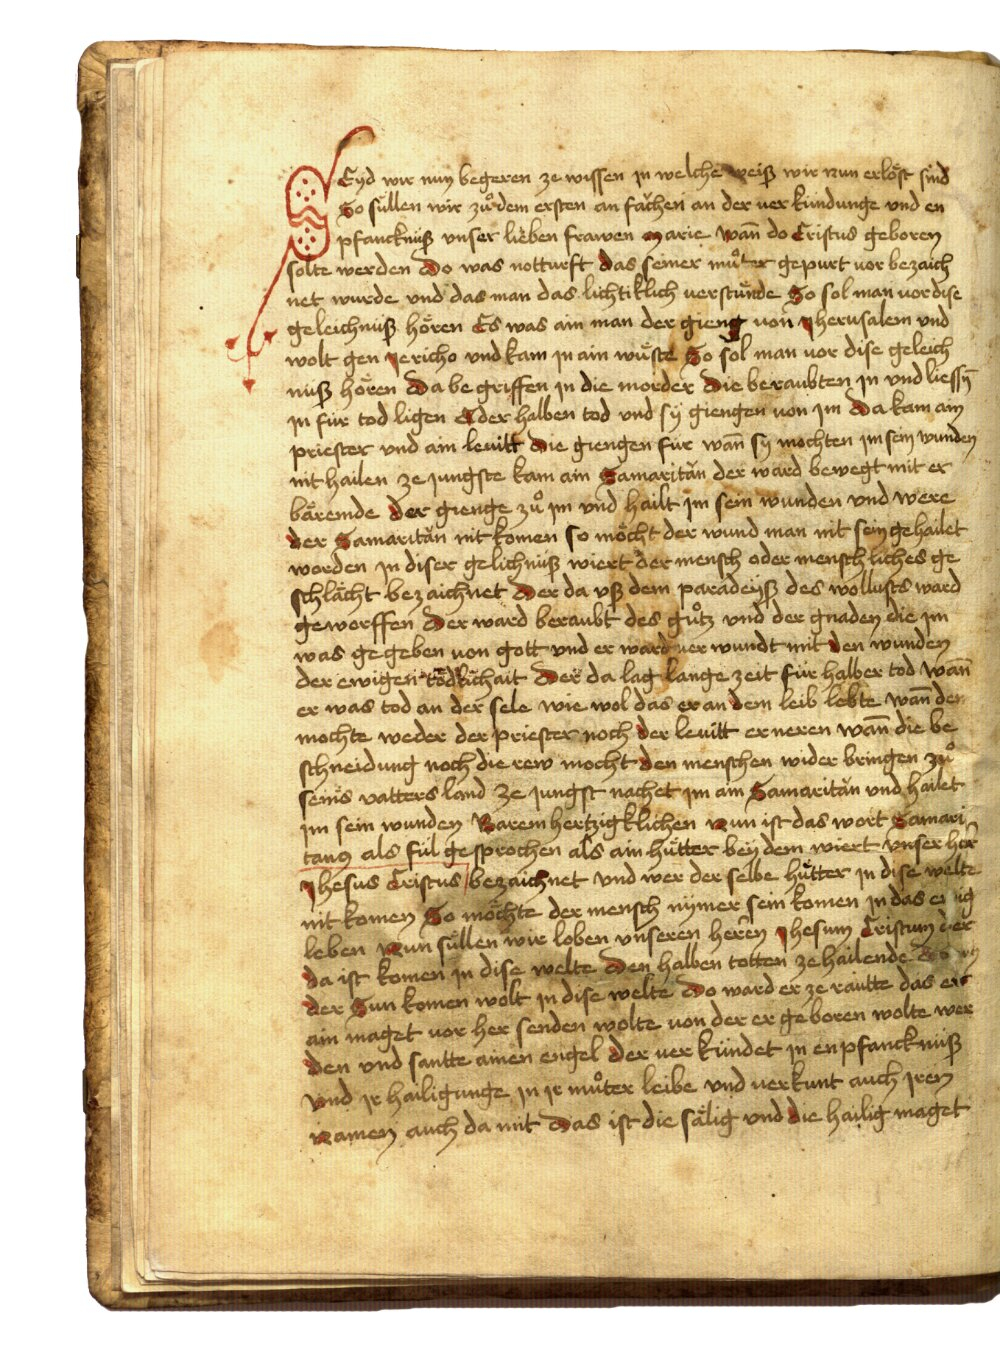 SEyd wir nun begeren ze wissen in welche weiß wir nun erlöst sind
So süllen wir zuͦ dem ersten an fachen an der ver kündunge und en
pfancknüß vnser lieben frawen marie wan̄ do Cristus geboren
solte werden Do was notturft das seiner muͦter gepurt vor bezaich
net wurde vnd das man das lichtiklich verstünde So sol man vor dise
geleichnüß hören Es was ain man der gieng von Jherusalem vnd
wolt gen Jericho vnd kam in ain wüste So sol man vor dise geleich
nüß hören Da be griffen in die morder Die beraubten in vnd liessn̄
in für tod ligen Oder halben tod vnd sÿ giengen von im Da kam ain
priester vnd ain leuitt Die giengen für wan̄ sÿ mochten im sein wunden
nit hailen ze jungste kam ain Samaritän der ward bewegt mit er
bäremde Der gienge zuͦ im vnd hailt im sein wunden vnd were
der Samaritän nit komen so möcht der wund man nit sein gehailet
worden in diser gelichnüß wiert der mensch oder menschliches ge
schlächt bezaichnet Der da vß dem paradeÿß des wollusts ward
geworffen Der ward beraubt des guͦtz vnd der gnaden die im
was gegeben von gott vnd er ward ver wundt mit den wunden
der ewigen tödlichait Der da lag lange zeit für halber tod wan̄
er was tod an der sele wie wol das er an dem leib lebte wan̄ den
mochte weder der priester noch der leuitt erneren wan̄ die be
schneidung noch die rew mocht den menschen wider bringen zuͦ
seins vatters land ze jungst nachet im ain Samaritän vnd hailet
im sein wunden Barem hertzigklichen Nun ist das wort Samari
tanus als fül gesprochen als ain hütter beÿ dem wiert vnser her̄
Jhesus Cristus bezaichnet vnd wer der selbe hütter in dise welte
nit komen So möchte der mensch nÿmer sein komen in das ewig
leben Nun süllen wir loben vnseren heren Jhesum Cristum der
da ist komen in dise welte Den halben totten ze hailende
der Sun komen wolt in dise welte Do ward er ze rautte das er
ain maget vor her senden wolte von der er geboren wolte wer
den vnd santte ainen engel Der ver kündet in enpfancknüß
vnd ir hailigunge in ir muͦter leibe vnd verkunt auch iren
Namen auch da mit Das ist die sälig vnd die hailig maget